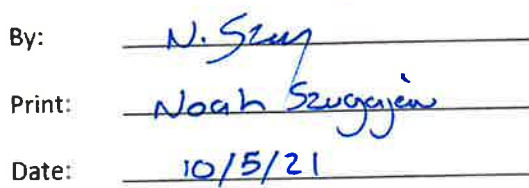 By: N. Szug
Print: Noah Szugajew
Date: 10/5/21